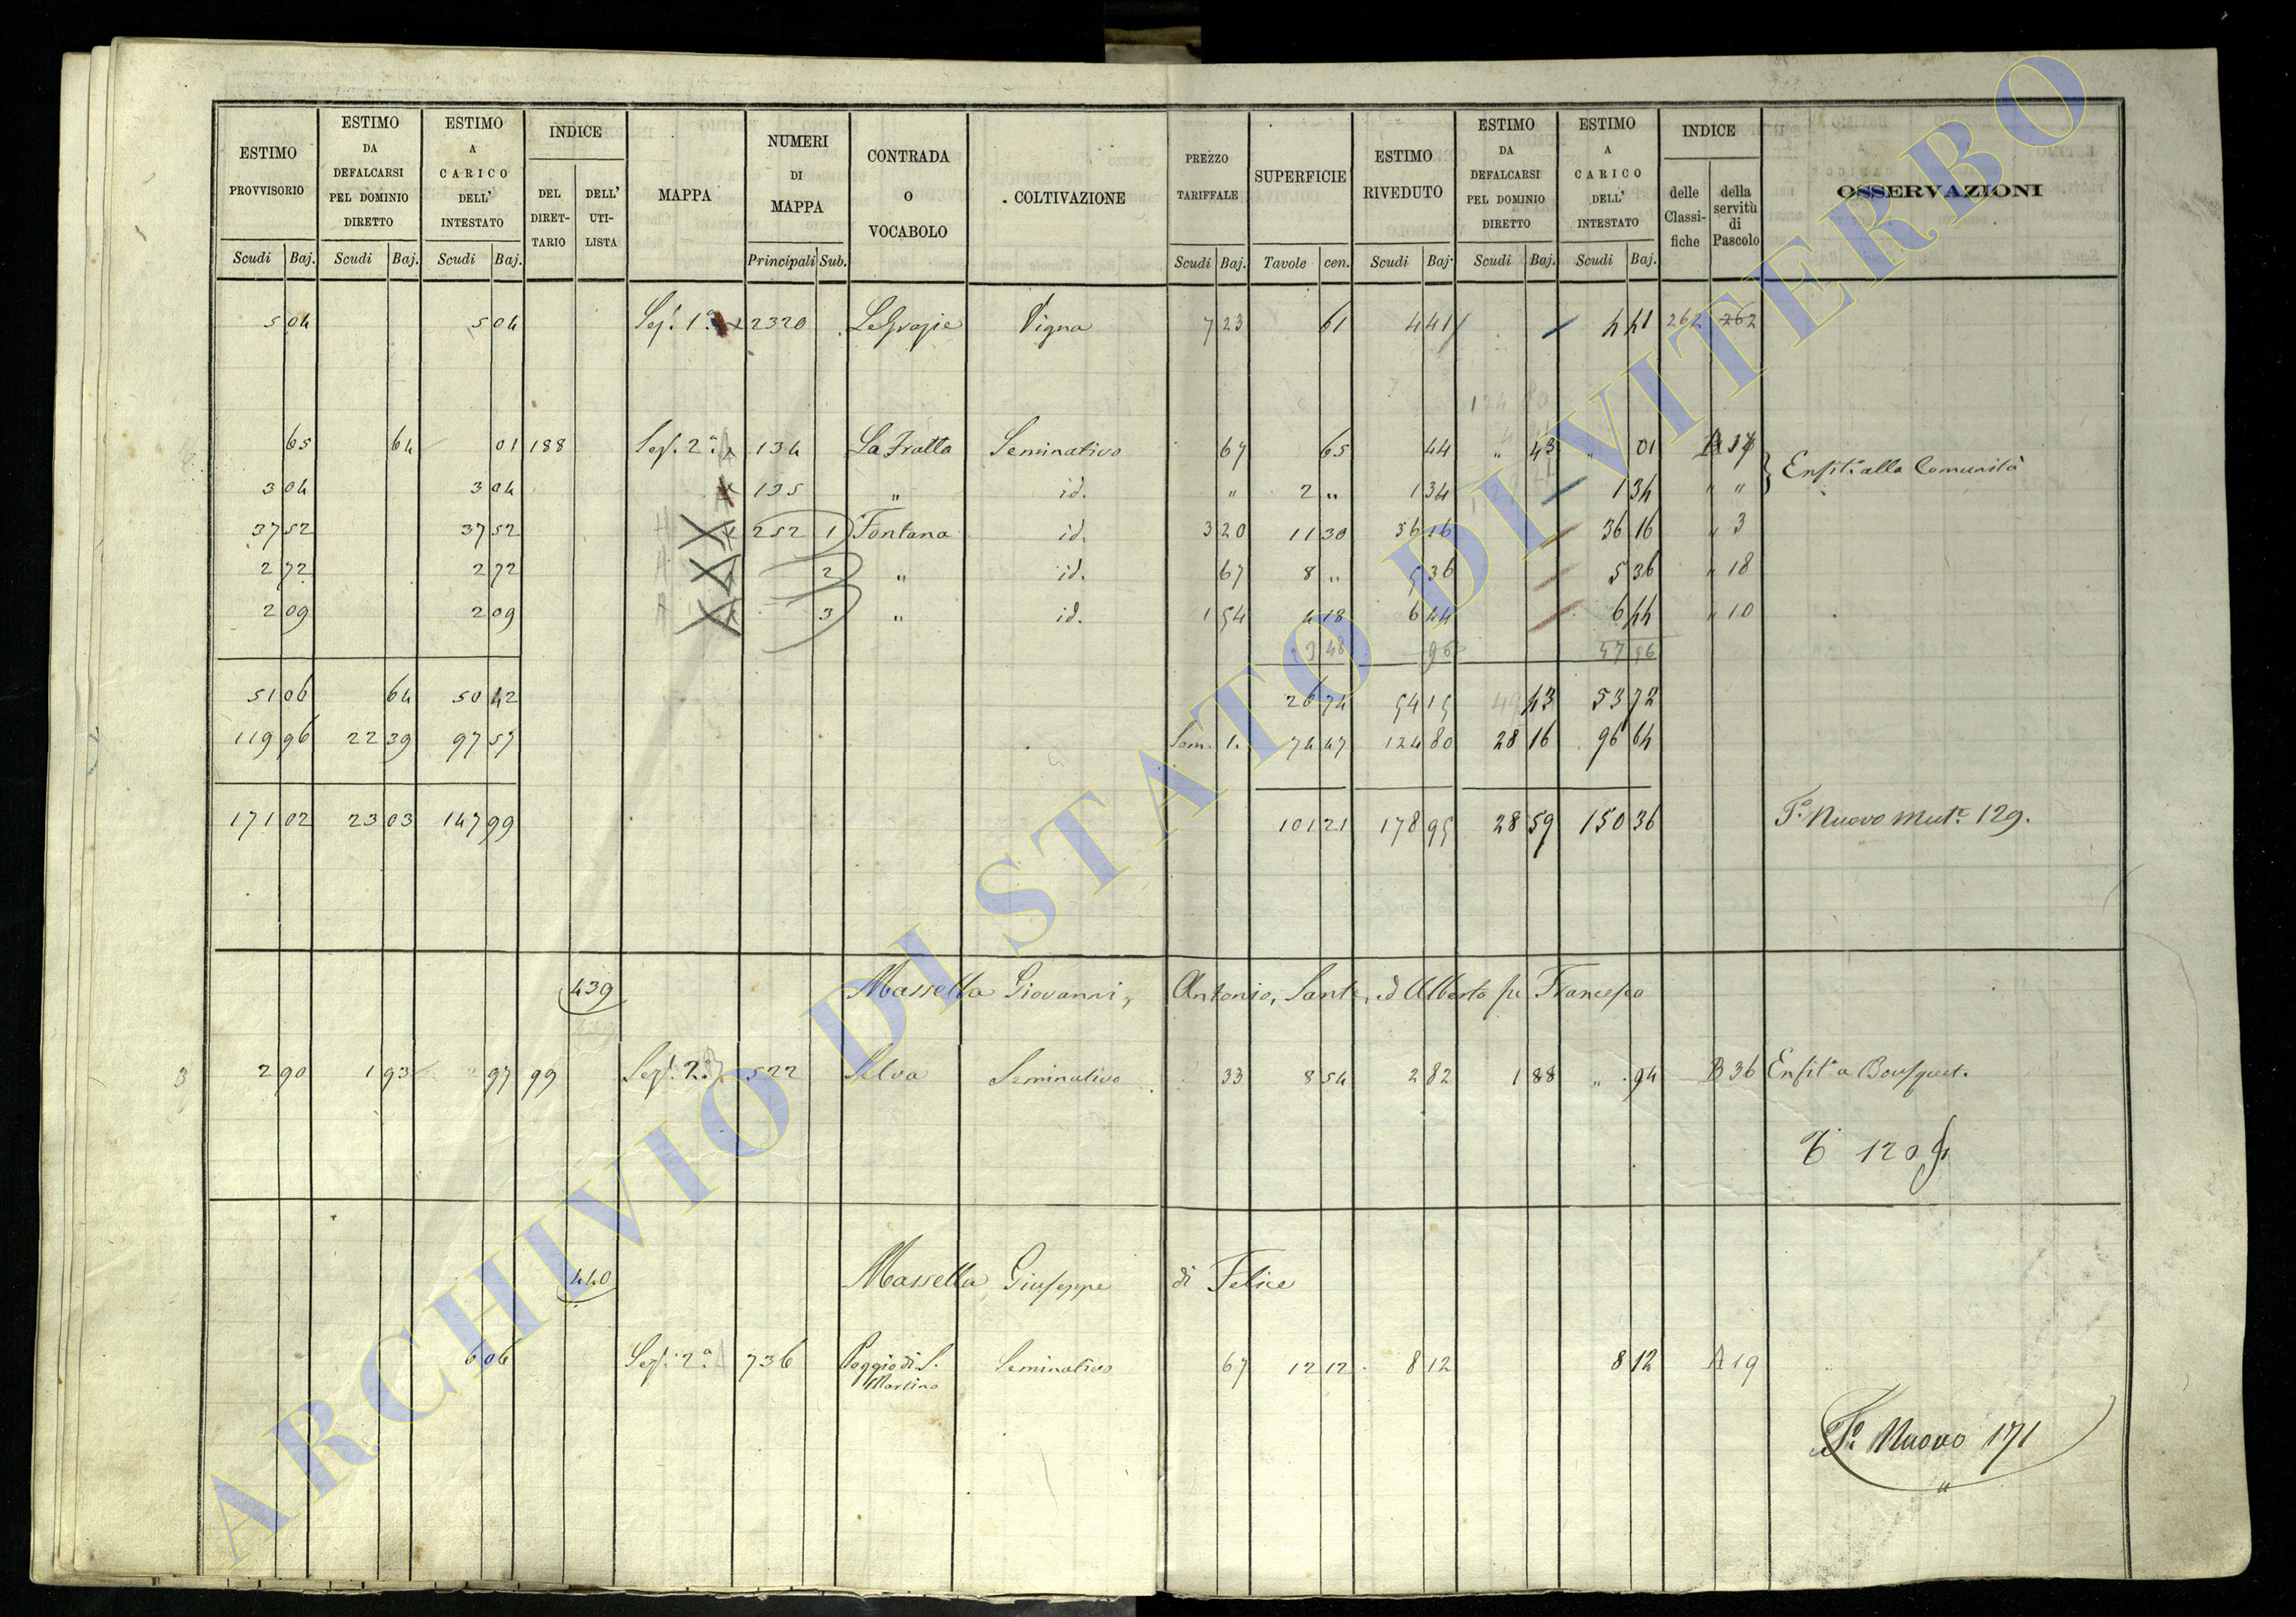 ESTIMO PROVVISORIO | ESTIMO DA DEFALCARSI PEL DOMINIO DIRETTO | ESTIMO A CARICO DELL' INTESTATO | INDICE | MAPPA | NUMERI DI MAPPA | CONTRADA O VOCABOLO | COLTIVAZIONE | PREZZO TARIFFALE | SUPERFICIE | ESTIMO RIVEDUTO | ESTIMO DA DEFALCARSI PEL DOMINIO DIRETTO | ESTIMO A CARICO DELL' INTESTATO | INDICE | OSSERVAZIONI
DEL DIRETTARIO | DELL' UTILISTA | delle Classifiche | della servitù di Pascolo
Scudi Baj. | Scudi Baj. | Scudi Baj. | Principali Sub. | Scudi Baj. | Tavole cen. | Scudi Baj. | Scudi Baj. | Scudi Baj.
5 04 | 5 04 | Sez. 1a | 2320 | Le Grazie | Vigna | 7 23 | 61 | 4 41 | 4 41 | 262 | 262
65 | 64 | 01 | 188 | Sez. 2a | 134 | La Fratta | Seminativo | 67 | 65 | 44 | " 43 | " 01 | A 17 | Enfit. alla Comunità
3 04 | 3 04 | 135 | " | id. | " | 2 " | 1 34 | 1 34 | " "
37 52 | 37 52 | 252 1 | Fontana | id. | 3 20 | 11 30 | 36 16 | 36 16 | " 3
2 72 | 2 72 | 2 | " | id. | 67 | 8 " | 5 36 | 5 36 | " 18
2 09 | 2 09 | 3 | " | id. | 1 54 | 4 18 | 6 44 | 6 44 | " 10
51 06 | 64 | 50 42 | 26 74 | 54 15 | 43 | 53 72
119 96 | 22 39 | 97 57 | Som. 1. | 74 47 | 124 80 | 28 16 | 96 64
171 02 | 23 03 | 147 99 | 101 21 | 178 95 | 28 59 | 150 36 | Fo. Nuovo Mut. 129.
439 | Massella Giovanni, Antonio, Sante, ed Alberto fu Francesco
3 | 2 90 | 1 93 | 97 | 99 | Sez. 2a | 522 | Selva | Seminativo | 33 | 8 54 | 2 82 | 1 88 | " 94 | B 36 | Enfit. a Bousquet.
120
440 | Massella Giuseppe di Felice
6 06 | Sez. 2a | 736 | Poggio di S. Martino | Seminativo | 67 | 12 12 | 8 12 | 8 12 | A 19
Fo. Nuovo 171
"
ARCHIVIO DI STATO DI VITERBO